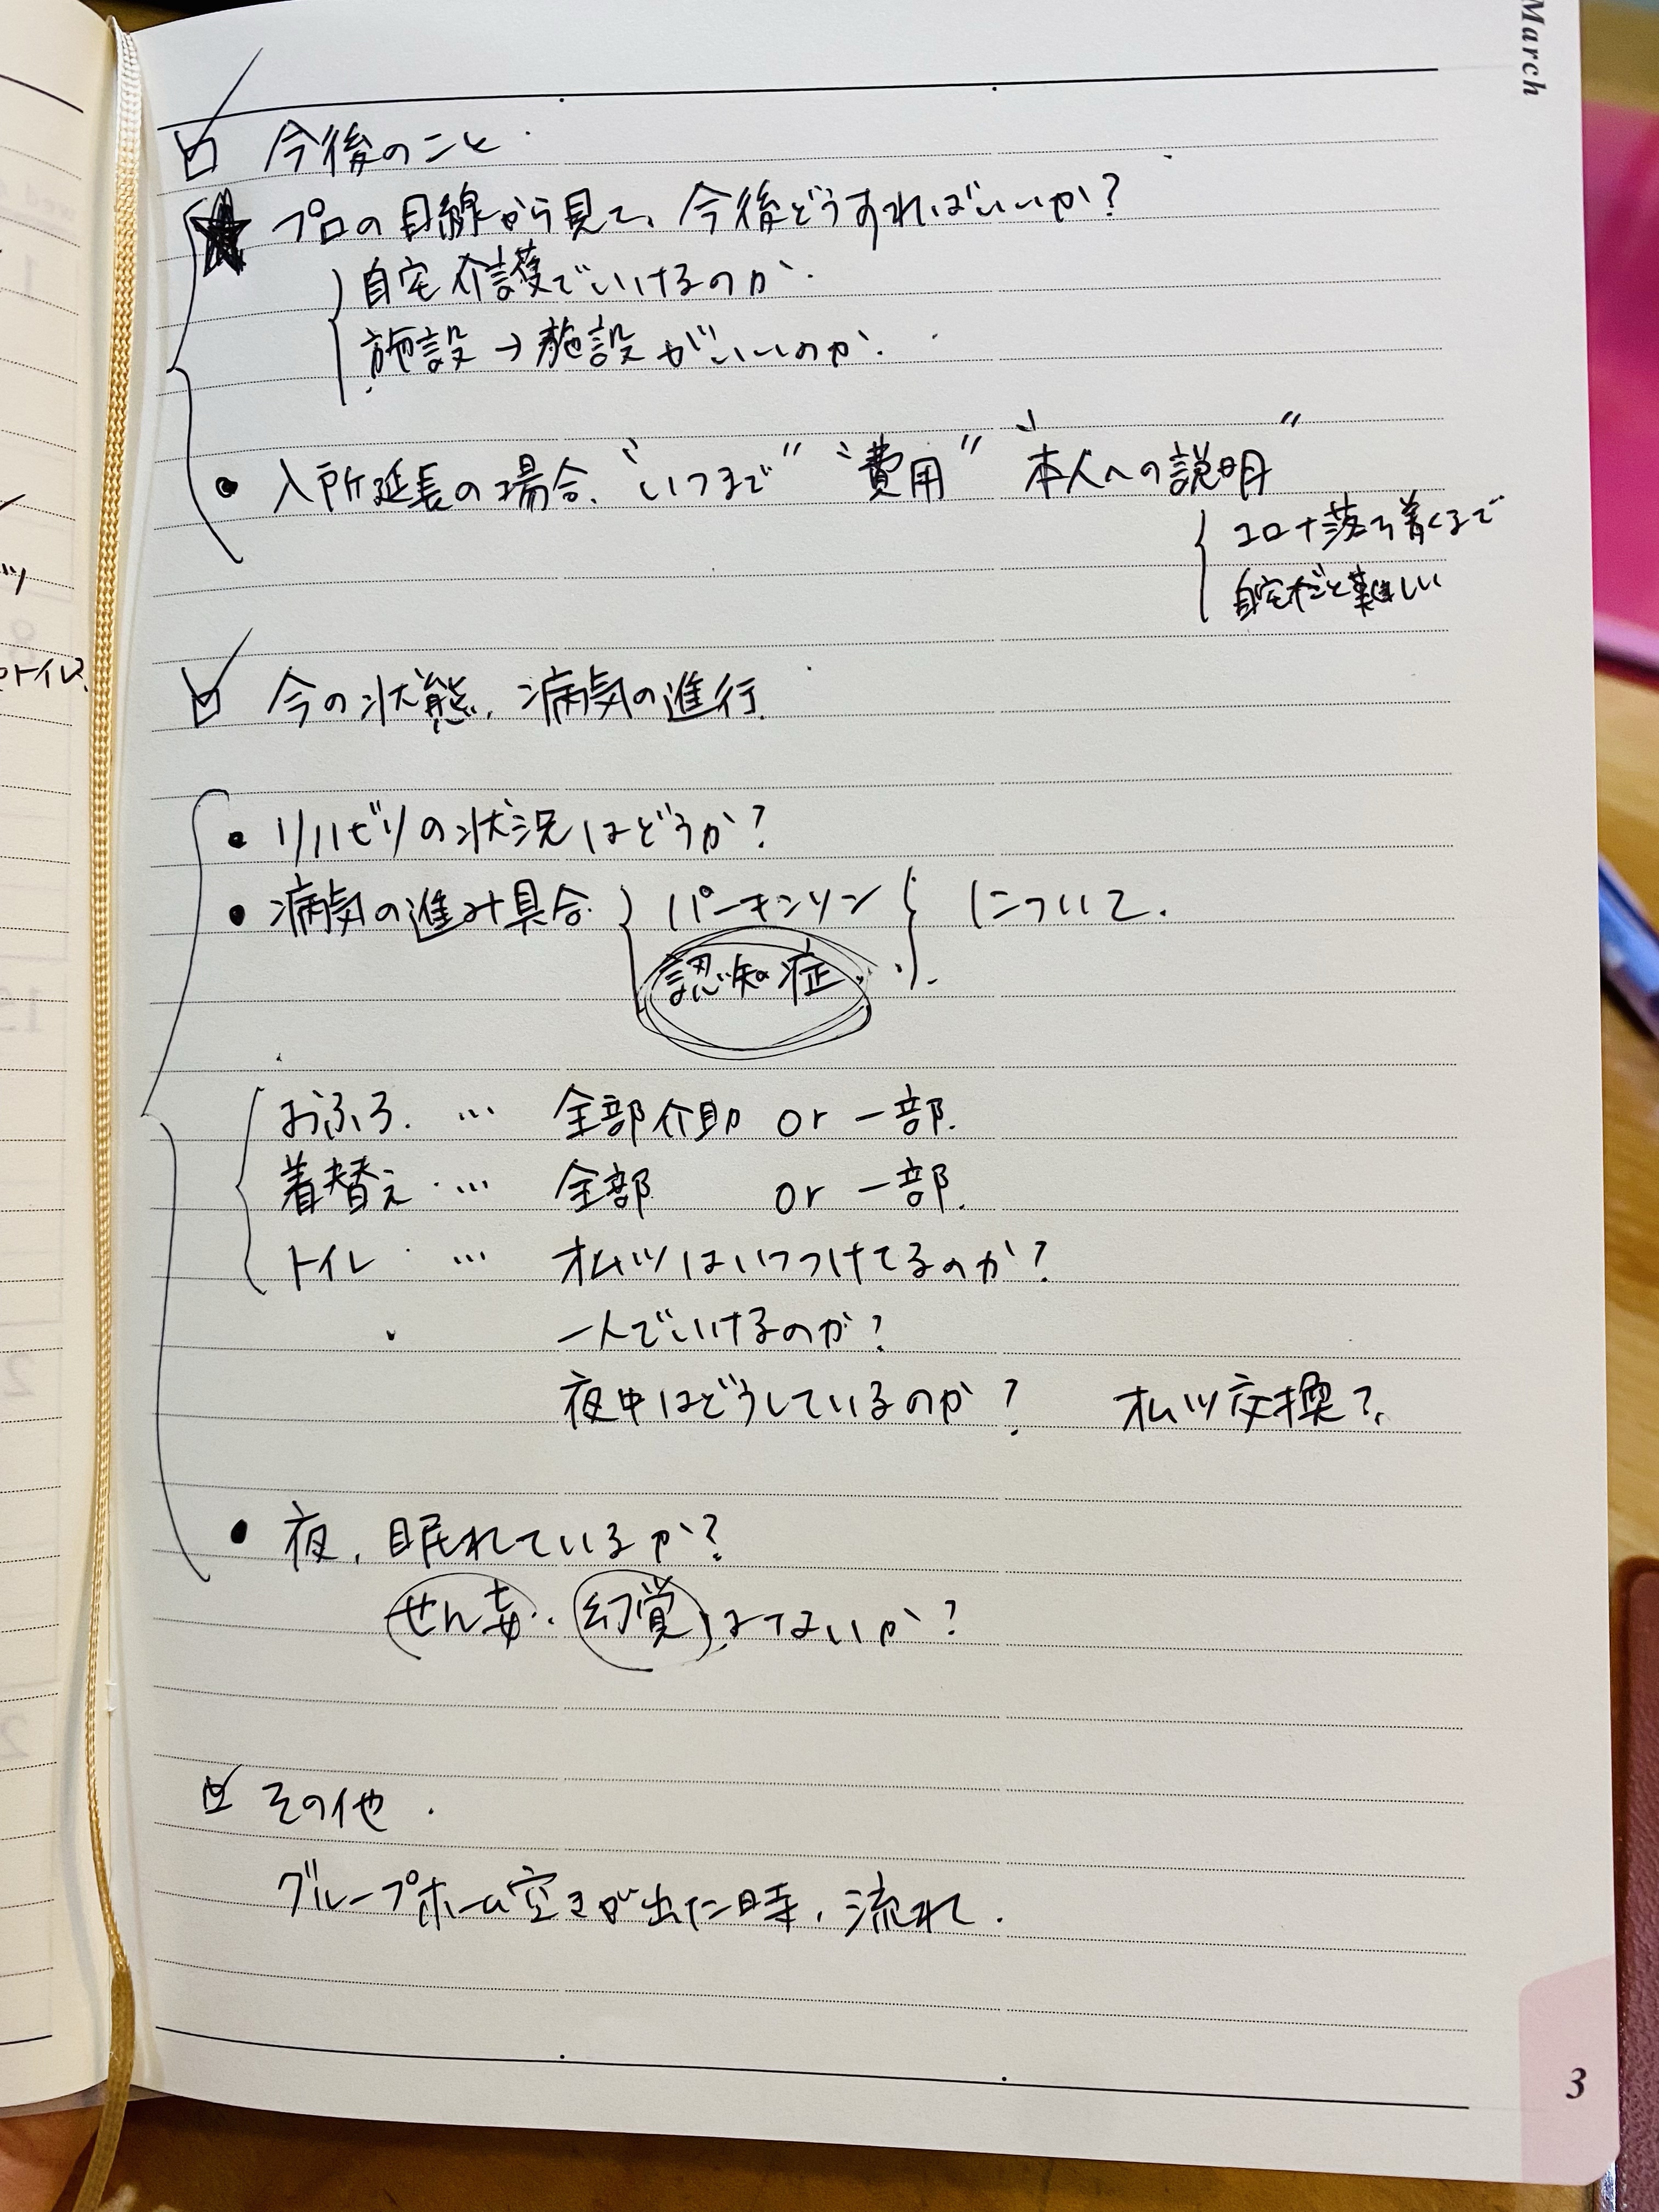 March
☑ 今後のこと
★ プロの目線から見て、今後どうすればいいか?
自宅介護でいけるのか
施設→施設がいいのか.
• 入所延長の場合、"いつまで" "費用" "本人への説明"
コロナ落ち着くまで
自宅だと難しい
☑ 今の状態、病気の進行
• リハビリの状況はどうか?
• 病気の進み具合 パーキンソン について.
認知症
おふろ. … 全部介助 or 一部.
着替え … 全部 or 一部.
トイレ … オムツはいつつけてるのか?
一人でいけるのか?
夜中はどうしているのか? オムツ交換?
• 夜、眠れているか?
せん妄・幻覚はでないか?
☑ その他
グループホーム空きが出た時、流れ.
3
トイレ